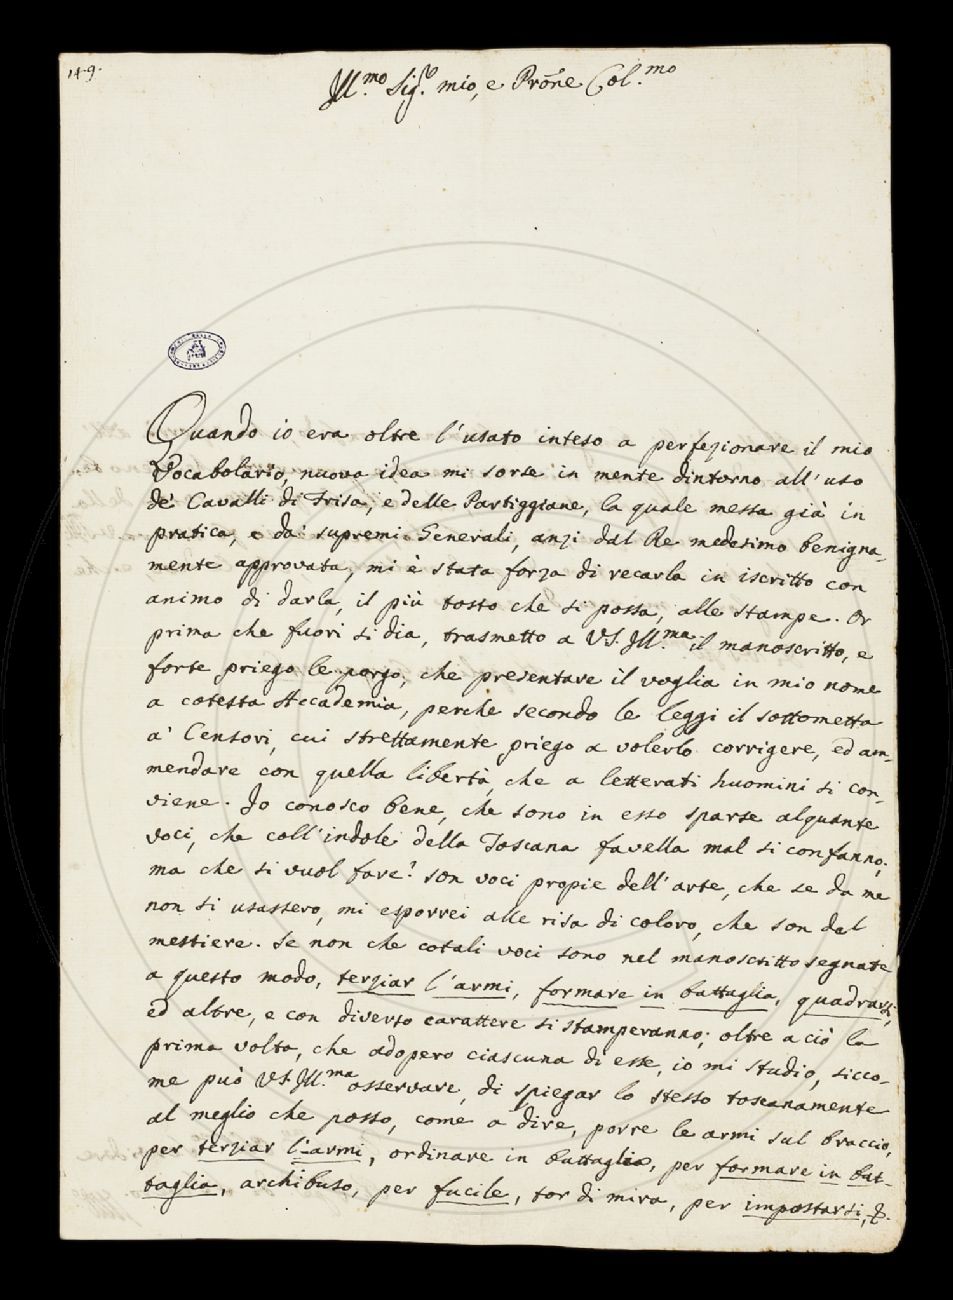 149.
Ill.mo Sig.r mio, e Prõne Col.mo
Quando io era oltre l'usato inteso a perfezionare il mio
Vocabolario, nuova idea mi sorse in mente dintorno all'uso
de' Cavalli di Frisa, e delle Partiggiane, la quale messa già in
pratica, e da' supremi Generali, anzi dal Re medesimo benigna-
mente approvata, mi è stata forza di recarla in iscritto con
animo di darla, il più tosto che si possa, alle stampe. Or
prima che fuori si dia, trasmetto a VS. Ill.ma il manoscritto, e
forte priego le porgo, che presentare il voglia in mio nome
a cotesta Accademia, perche secondo le leggi il sottometta
a' Censori, cui strettamente priego a volerlo corrigere, ed am-
mendare con quella libertà, che a letterati huomini si con-
viene. Io conosco bene, che sono in esso sparse alquante
voci, che coll'indole della Toscana favella mal si confanno;
ma che si vuol fare? son voci propie dell'arte, che se da me
non si usassero, mi esporrei alle risa di coloro, che son del
mestiere. Se non che cotali voci sono nel manoscritto segnate
a questo modo, terziar l'armi, formare in battaglia, quadrarsi,
ed altre, e con diverso carattere si stamperanno; oltre a ciò la
prima volta, che adopero ciascuna di esse, io mi studio, sicco-
me può VS. Ill.ma osservare, di spiegar lo stesso toscanamente
al meglio che posso, come a dire, porre le armi sul braccio,
per terziar l'armi, ordinare in battaglia, per formare in bat-
taglia, archibuso, per fucile, tor di mira, per impostarsi, &.